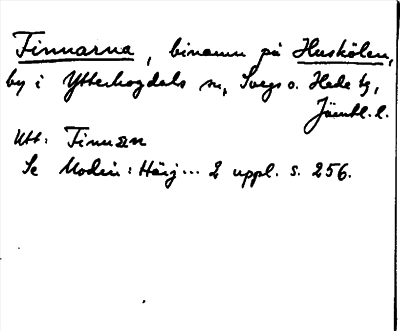 Finnarna, binamn på Huskölen,
by i Ytterhogdals sn, Svegs o. Hede tg,
Jämtl. l.
Utt: Finnan
Se Modin: Härj... 2 uppl. s. 256.